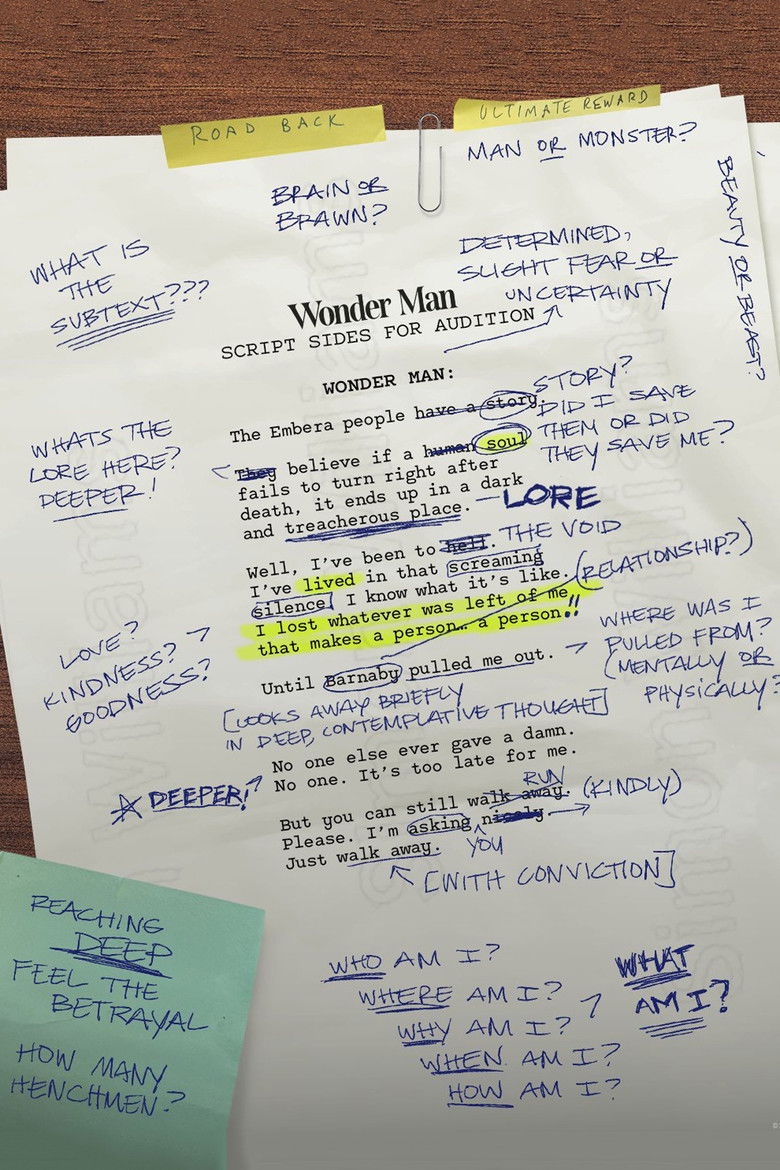 ROAD BACK
ULTIMATE REWARD
MAN OR MONSTER?
BEAUTY OR BEAST?
BRAIN OR
BRAWN?
WHAT IS
THE
SUBTEXT???
DETERMINED,
SLIGHT FEAR OR
UNCERTAINTY
Wonder Man
SCRIPT SIDES FOR AUDITION
WONDER MAN:
The Embera people have a story.
STORY?
DID I SAVE
THEM OR DID
THEY SAVE ME?
WHATS THE
LORE HERE?
DEEPER!
They believe if a human soul
fails to turn right after
death, it ends up in a dark
and treacherous place.
LORE
Well, I've been to hell. THE VOID
I've lived in that screaming
silence. I know what it's like.
(RELATIONSHIP?)
I lost whatever was left of me
that makes a person… a person!!
LOVE?
KINDNESS?
GOODNESS?
Until Barnaby pulled me out.
WHERE WAS I
PULLED FROM?
(MENTALLY OR
PHYSICALLY?
[LOOKS AWAY BRIEFLY
IN DEEP, CONTEMPLATIVE THOUGHT]
No one else ever gave a damn.
No one. It's too late for me.
DEEPER!
RUN
But you can still walk away.
(KINDLY)
Please. I'm asking nicely.
YOU
Just walk away.
[WITH CONVICTION]
REACHING
DEEP
FEEL THE
BETRAYAL
HOW MANY
HENCHMEN?
WHO AM I?
WHERE AM I?
WHY AM I?
WHEN AM I?
HOW AM I?
WHAT
AM I?